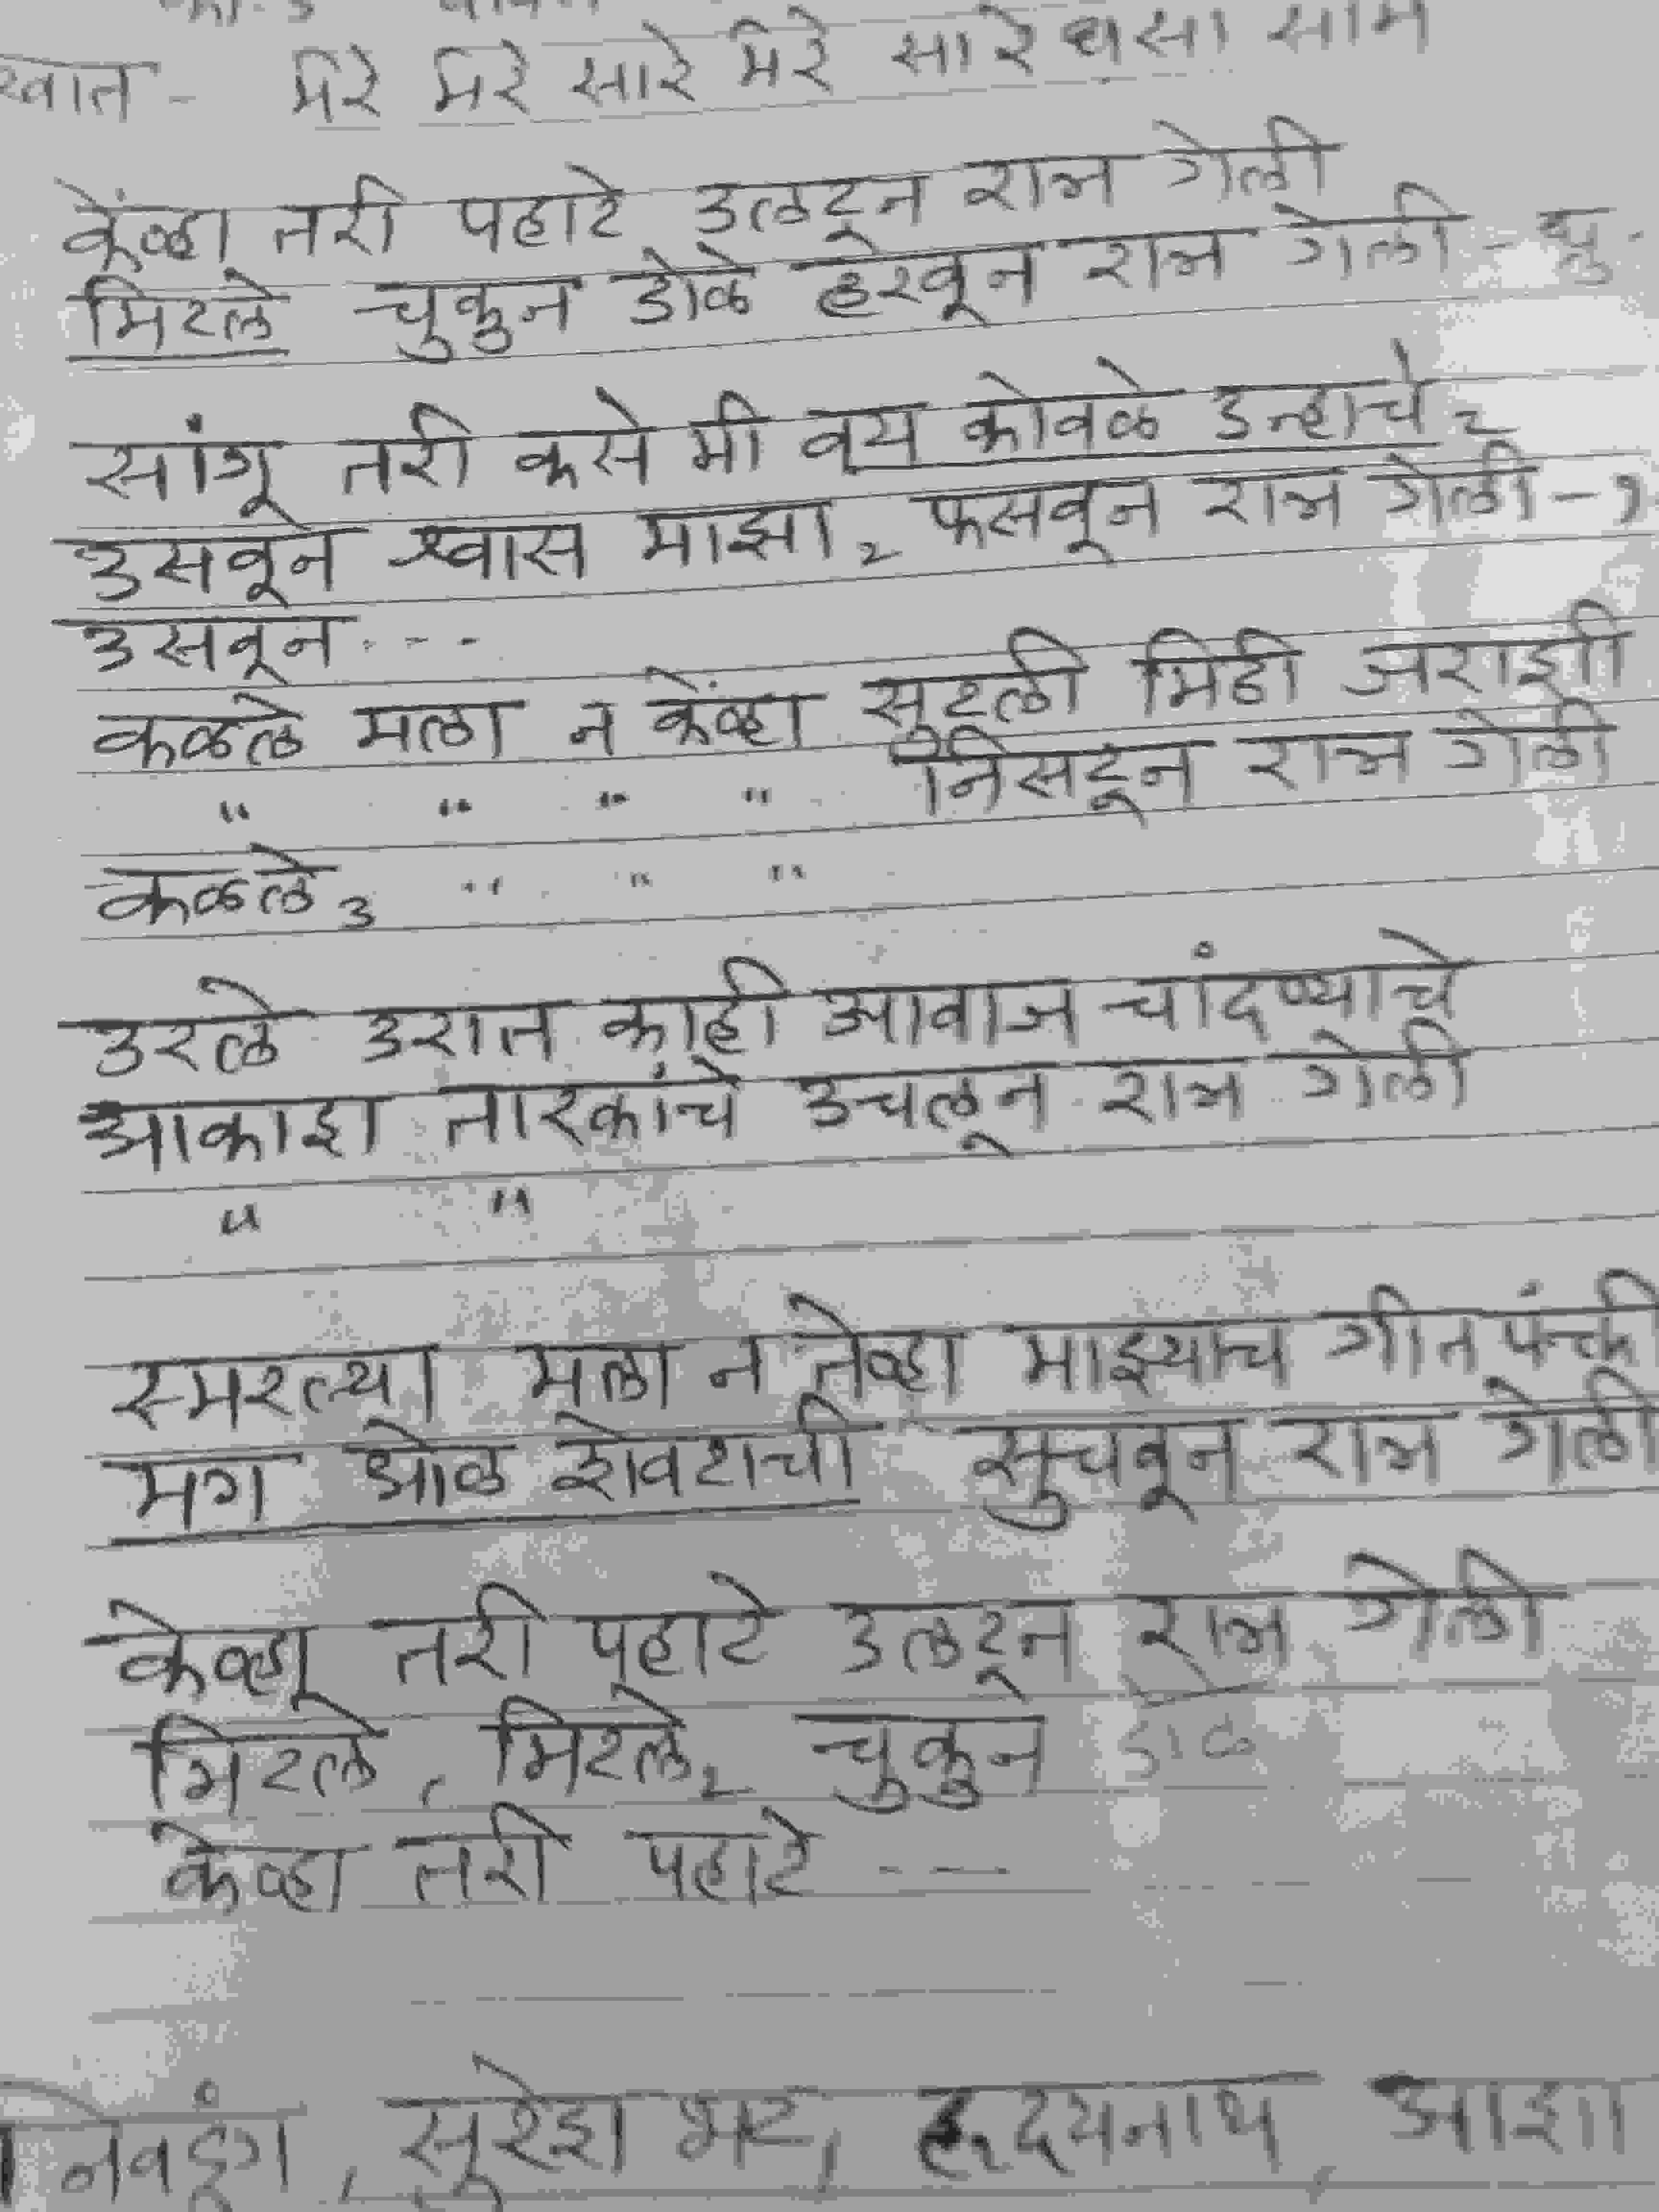 सुरुवात - मेरे मेरे सारे मेरे सारे धसा साम
केंव्हा तरी पहाटे उलटून रात्र गेली
मिटले चुकुन डोळे हरवून रात्र गेली - ध्रु.
सांगू तरी कसे मी वय कोवळे उन्हाचे २
उसवून श्वास माझा २ फसवून रात्र गेली - १
उसवून ...
कळले मला न केंव्हा सुटली मिठी जराशी
" " " " निसटून रात्र गेली
कळले ३ " " "
उरले उरात काही आवाज चांदण्याचे
आकाश तारकांचे उचलून रात्र गेली
" "
स्मरल्या मला न तेव्हा माझ्याच गीत पंक्ती
मग ओळ शेवटाची सुचवून रात्र गेली
केव्हा तरी पहाटे उलटून रात्र गेली
मिटले, मिटले २ चुकुन डोळे
केव्हा तरी पहाटे ---
निवडुंग, सुरेश भट, हृदयनाथ, आशा